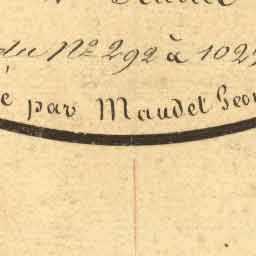 du Nº 292 à 102
par Maudet Geo